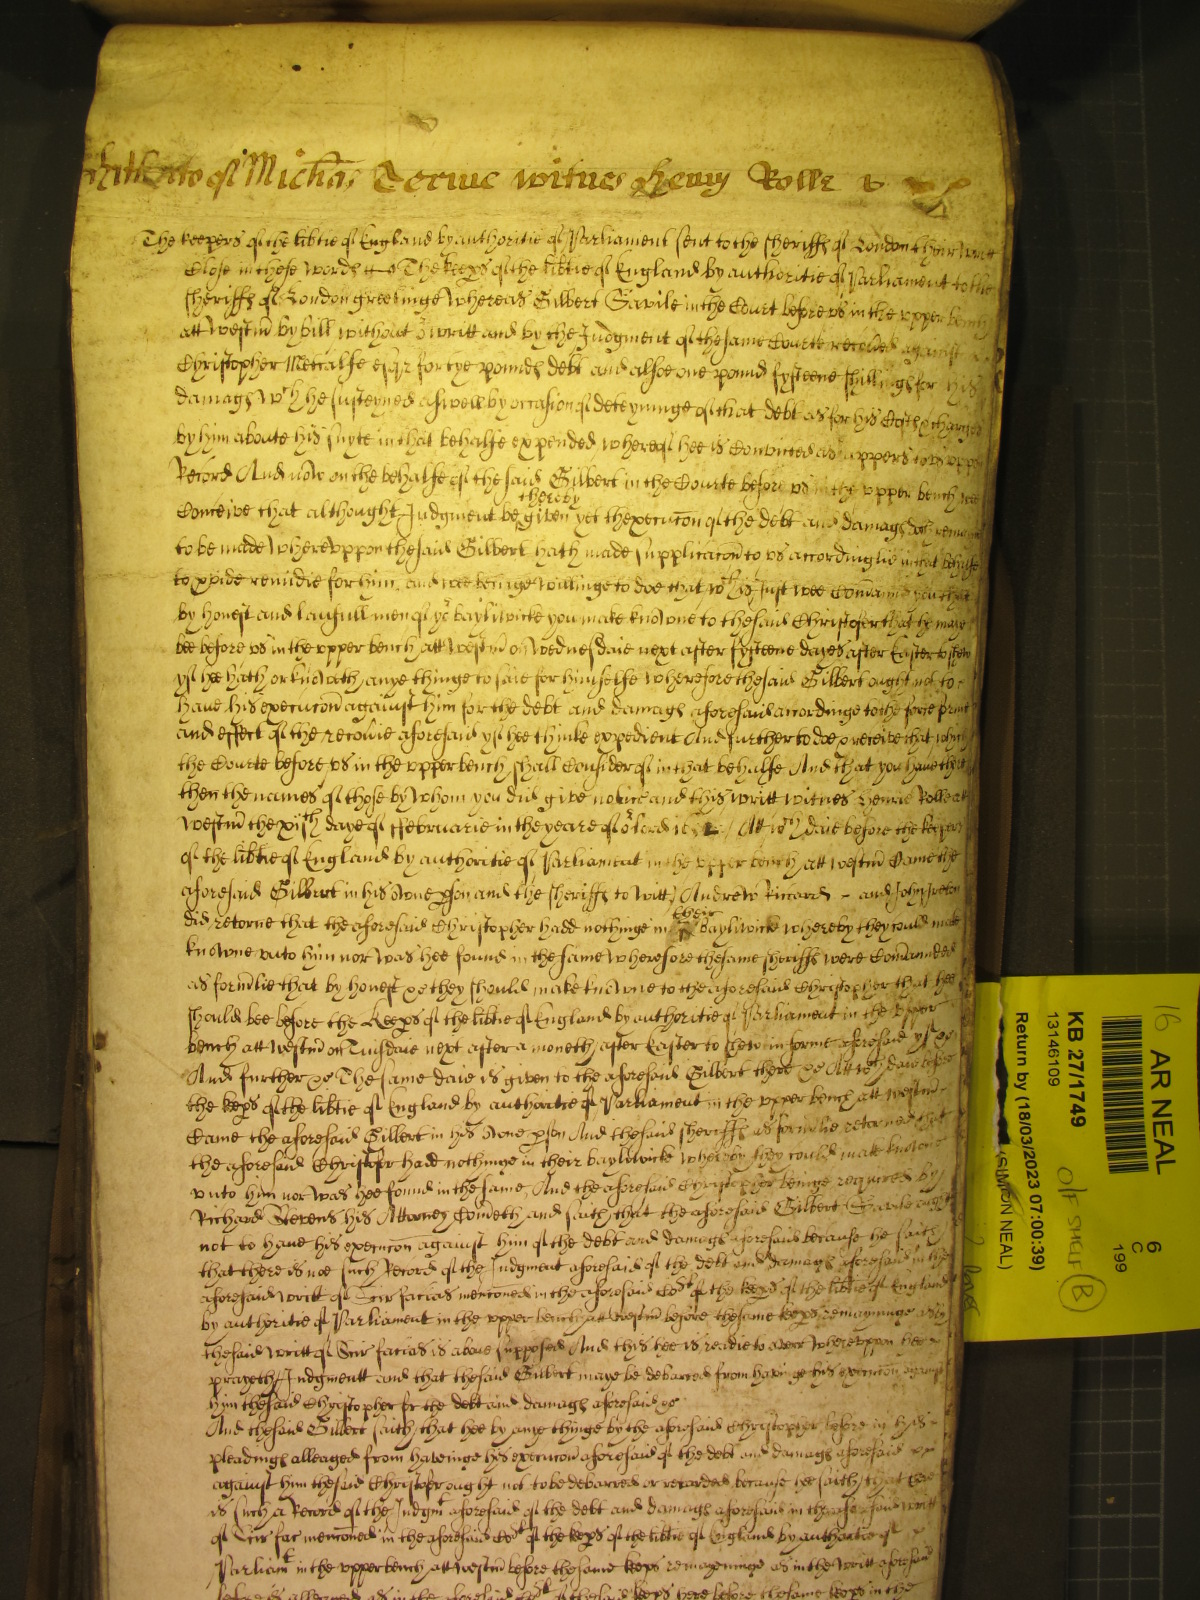 of Micha Terme witnes Henry Rolle
The keepers of the libtie of England by authoritie of Parliament sent to the sheriffs of London their writt
Close in these words The keeps of the libtie of England by authoritie of Parliament to the
sheriffs of London greetinge Whereas Gilbert Savile in the Court before us in the upper bench
att Westm by bill without writt and by the Judgment of the same Courte recovered against
Christopher Metcalfe esqr fortye pounds debt and alsoe one pound fyfteene shillings for his
damags wch he susteyned aswell by occasion of deteyninge of that debt as for his Costs & charges
by him aboute his suyte in that behalfe expended whereof hee is Convicted as appers to us uppon
Record And now on the behalfe of the said Gilbert in the Courte before us in the upper bench wee
thereby
Conceive that althought Judgment be given yet thexecucon of the debt and damags doth remaine
to be made Whereuppon the said Gilbert hath made supplicacon to us accordinglie in that behalfe
to pvide remidie for him and wee beinge willinge to doe that wch is Just wee Comand you that
by honest and laufull men of yr bayliwicke you make knowne to the said Christofer that he maye
bee before us in the upper bench att Westm on Wednesdaie next after fyfteene dayes after Easter to shew
yf hee hath or knoweth anye thinge to saie for himselfe wherefore the said Gilbert ought not to
have his execucon against him for the debt and damags aforesaid accordinge to the force
and effect of the recovie aforesaid yf hee thinke expedient And further to doe & receive that which
the Courte before us in the upper bench shall Consider of in that behalfe And that you have there
then the names of those by whom you did give notice and this writt witnes Henrie Rolle att
Westm the xijth daye of Februarie in the yeare of or lord Att wch daie before the keepers
of the libtie of England by authoritie of Parliament in the upper bench att Westm Came the
aforesaid Gilbert in his owne pson and the sheriffs to witt Andrew Riccard - and John Ireton
their
did retorne that the aforesaid Christopher hadd nothinge in bayliwick whereby they could make
knowne unto him nor was hee found in the same Wherefore the same sheriffs were Comaunded
as formlie that by honest &c they should make knowne to the aforesaid Christopher that hee
should bee before the Keeps of the libtie of England by authoritie of Parliament in the upper
bench att Westm on Tuisdaie next after a moneth after Easter to shew in forme aforesaid yf &c
And further &c The same daie is given to the aforesaid Gilbert there &c Att wch daie before
the keeps of the libtie of England by authoritie of Parliament in the upper bench att Westm
Came the aforesaid Gilbert in his owne pson And the said sheriffs as formlie retorned that
the aforesaid Christofr hadd nothinge in their bayliwick whereby they could make knowne
unto him nor was hee found in the same, And the aforesaid Christopher beinge required by
Richard Stevens his Attorney Cometh and saith that the aforesaid Gilbert Savile ought
not to have his execucon against him of the debt and damags aforesaid because he saith
that there is noe such Record of the Judgment aforesaid of the debt and damags aforesaid in the
aforesaid writt of Scir facias menconed in the aforesaid Cort of the keeps of the libtie of England
by authoritie of Parliament in the upper bench att Westm before the same keeps remayninge as by
the said writt of Scir facias is above supposed And this hee is readie to averr Whereuppon hee
prayeth Judgmentt and that the said Gilbert maye be debarred from havinge his execucon against
him the said Christopher for the debt and damags aforesaid &c
And the said Gilbert saith that hee by anye thinge by the aforesaid Christopher before in his
pleadings alleaged from havinge his execucon aforesaid of the debt and damags aforesaid
against him the said Christofr ought not to be debarred or retarded because he saith that there
is such a Record of the Judgmt aforesaid of the debt and damags aforesaid in the aforesaid writt
of Scir fac menconed in the aforesaid Cort of the keeps of the libtie of England by authoritie of
Parliamt in the upper bench att Westm before the same keeps remayninge as in the writt aforesaid
before is alleaged as in the aforesaid Cort of the said keeps here before the same keeps in the
16
AR NEAL
KB 27/1749
13146109
Return by (18/03/2023 07:00:39)
(SIMON NEAL)
O/F SHELF
B
6
C
199